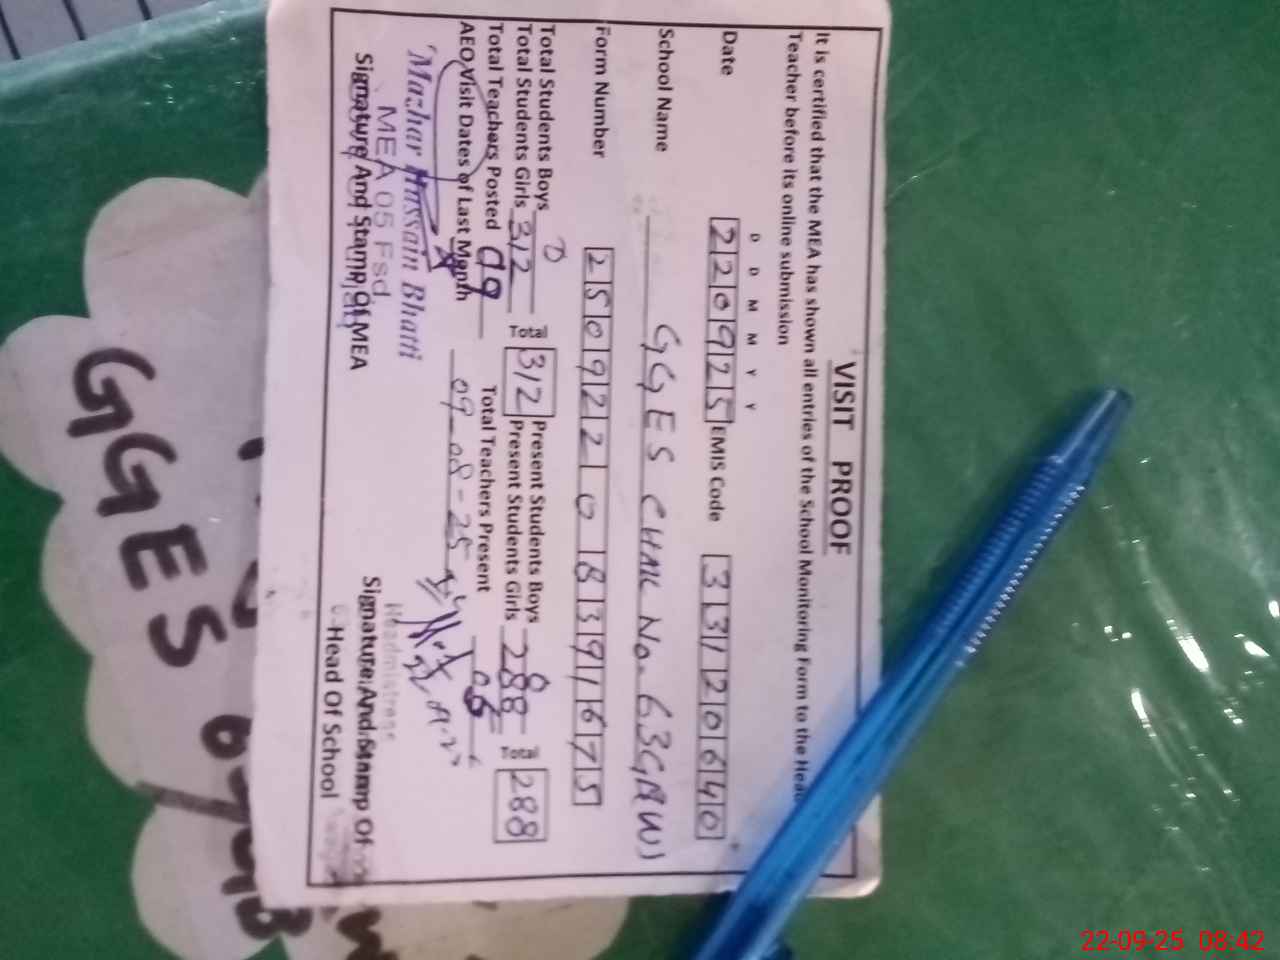 VISIT PROOF
It is certified that the MEA has shown all entries of the School Monitoring Form to the Head
Teacher before its online submission
D D M M Y Y
Date 220925 EMIS Code 33120640
School Name GGES CHAK No. 63GB(W)
Form Number 25092208391675
Total Students Boys 0 Present Students Boys 0
Total Students Girls 312 Total 312 Present Students Girls 288 Total 288
Total Teachers Posted 09 Total Teachers Present 06
AEO Visit Dates of Last Month 09-08-25
Mazhar Hussain Bhatti
MEA 05 Fsd
Signature And Stamp Of MEA
Headmistress
Signature And Stamp Of
Head Of School
GGES
22-09-25 08:42